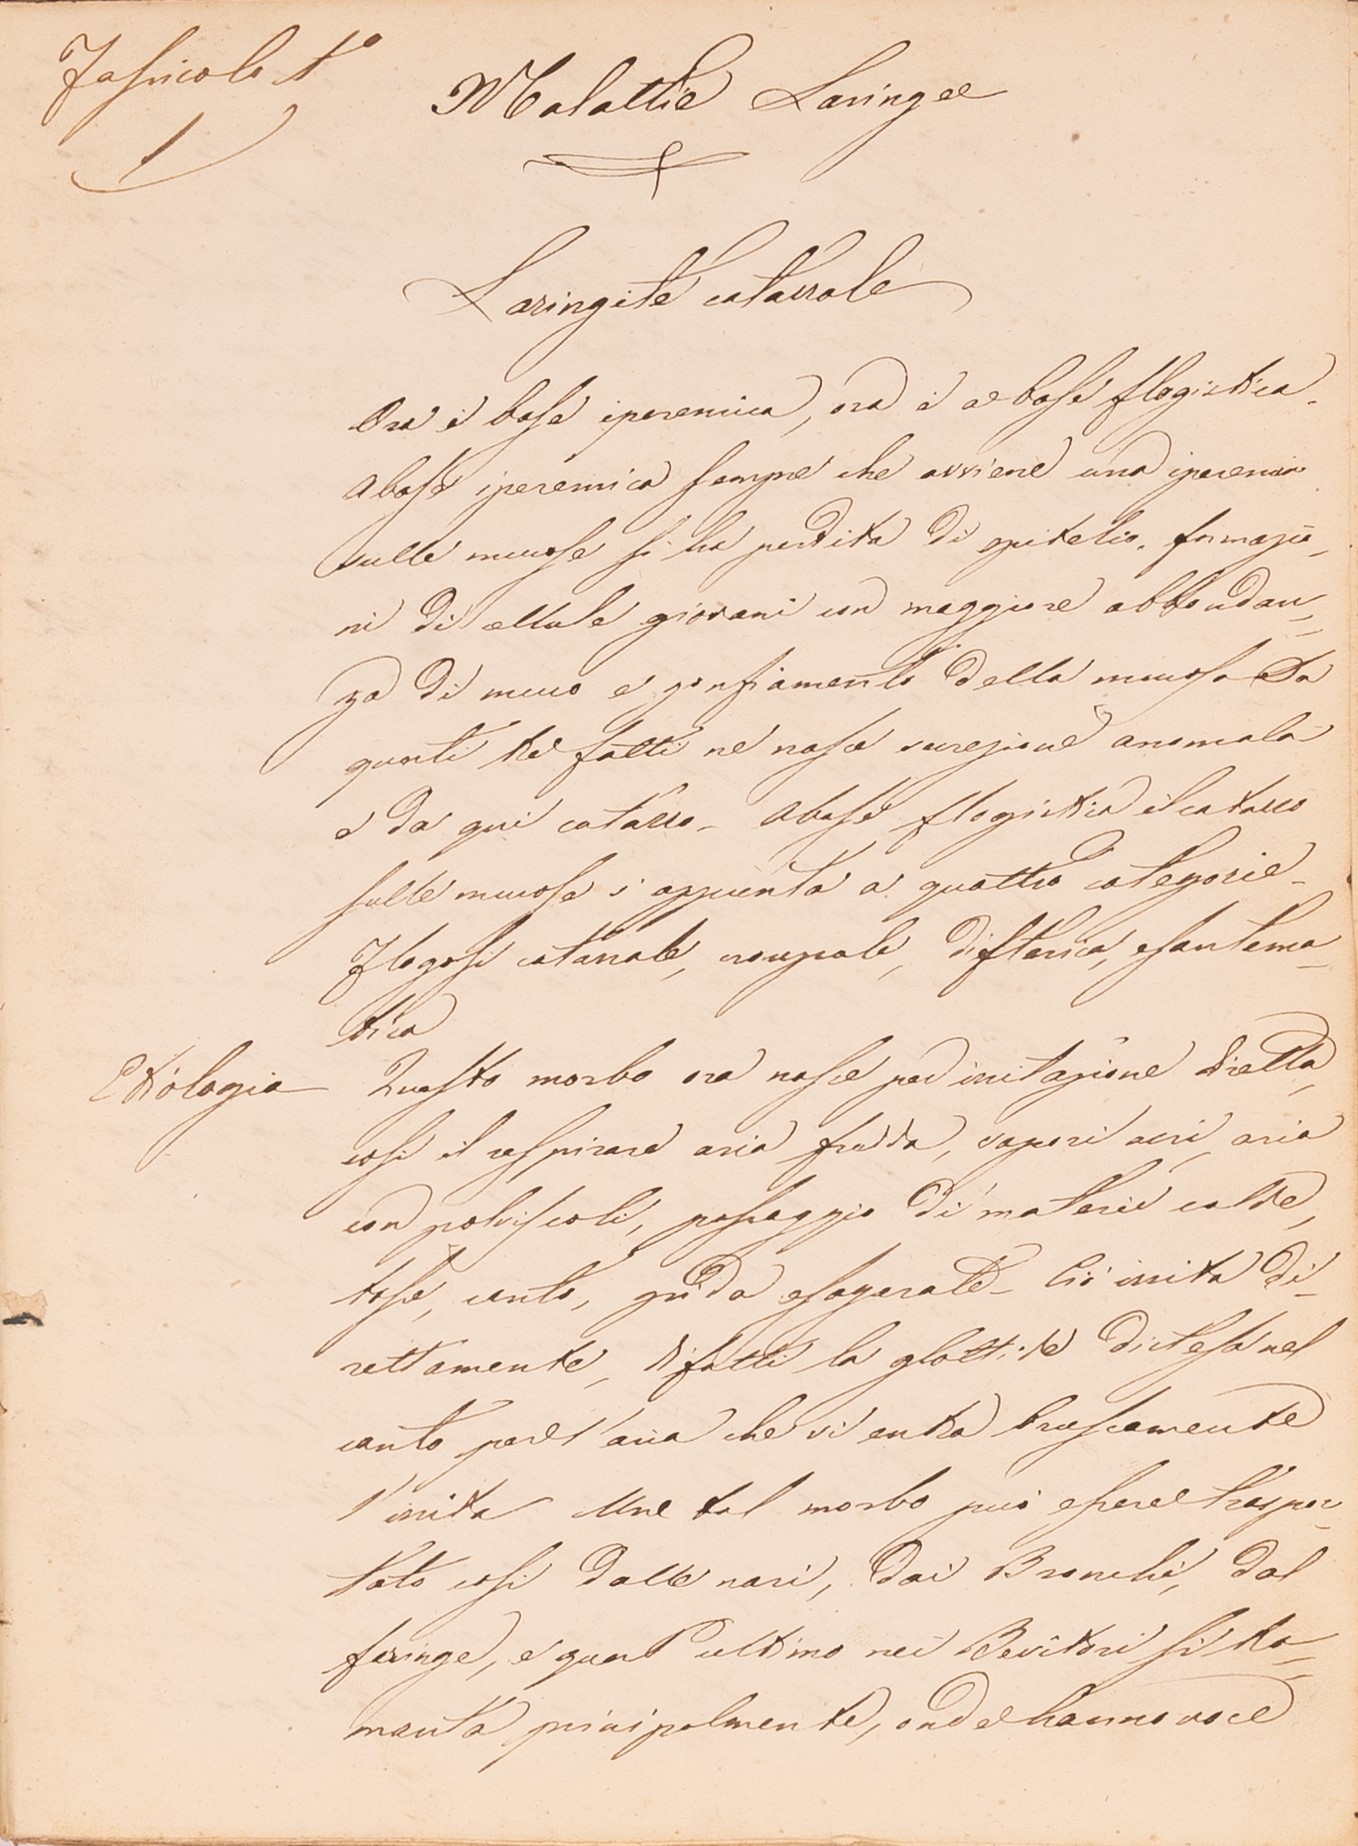 Fascicolo 1°
1
Malattie Laringee
Laringite catarrale
Ora è base iperemica, ora è a base flogistica.
A base iperemica sempre che avviene una iperemia
sulle mucose si ha perdita di epitelio. formazio_
ni di cellule giovani con maggiore abbondan_
za di muco e gonfiamento della mucosa Da
questi tre fatti ne nasce secrezione anomala
e da qui catarro_ A base flogistica il catarro
sulle mucose s'appunta a quattro categorie_
Flogosi catarrale, crouypale, difterica, esantema_
tica
Etiologia Questo morbo ora nasce per irritazione diretta,
così il respirare aria fredda, vapori acri, aria
con polviscoli, passaggio di materie calde,
tosse, canto, grida esagerate_ Ciò irrita di_
rettamente, difatti la glottide distesa nel
canto per l'aria che vi entra bruscamente
l'irrita tal morbo può essere traspor_
tato così dalle nari, dai Bronchi, dal
faringe, e quest'ultimo nei Bevitori si ta_
manta principalmente, onde hanno voce